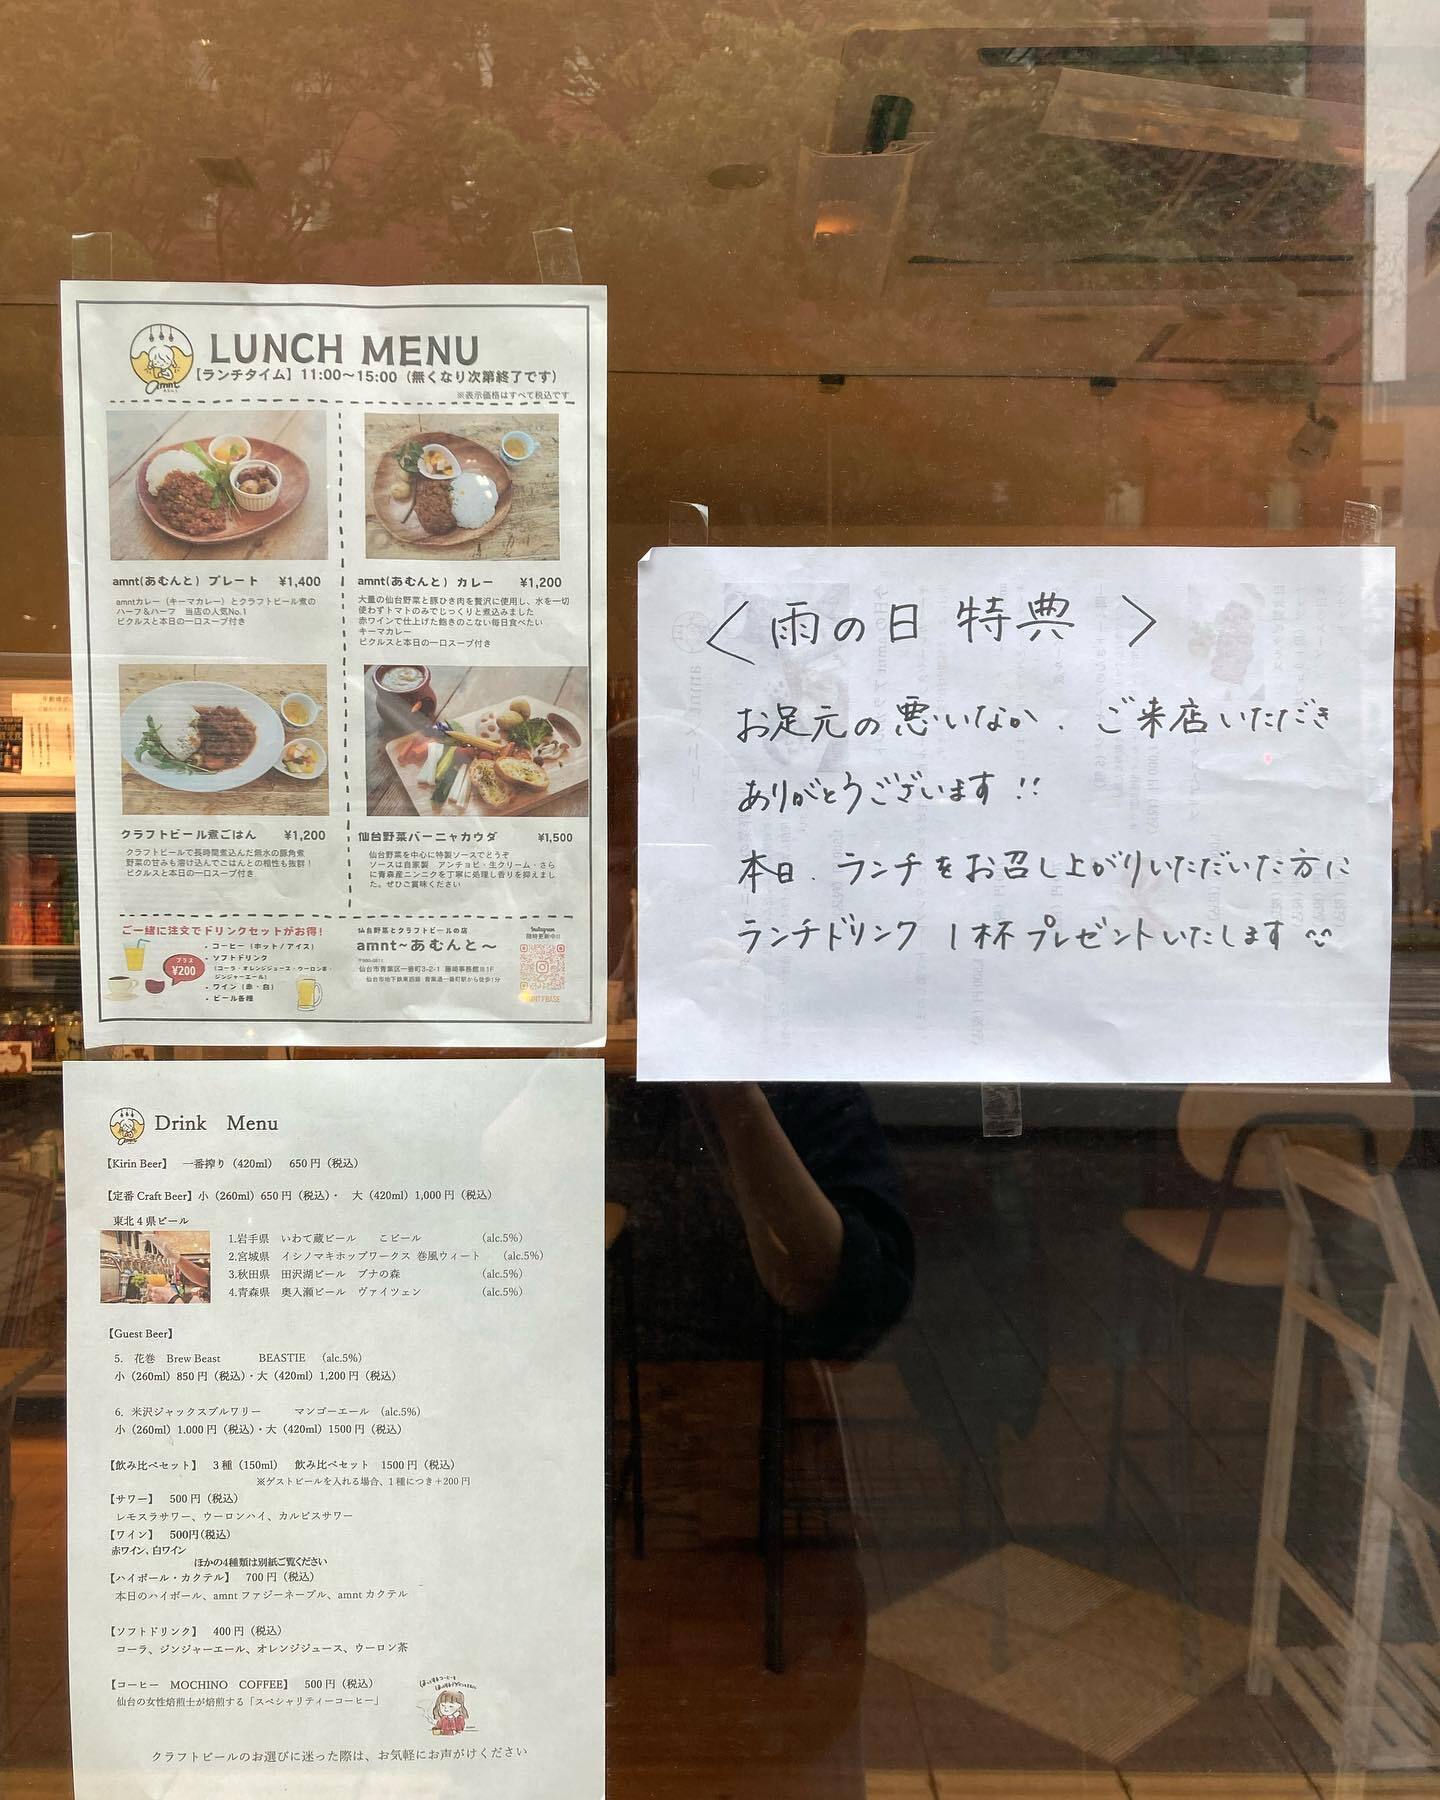 LUNCH MENU
【ランチタイム】11:00〜15:00（無くなり次第終了です）
※表示価格はすべて税込です
amnt(あむんと) プレート ¥1,400
amntカレー（キーマカレー）とクラフトビール煮の
ハーフ＆ハーフ 当店の人気No.1
ピクルスと本日の一口スープ付き
amnt(あむんと) カレー ¥1,200
大量の仙台野菜と豚ひき肉を贅沢に使用し、水を一切
使わずトマトのみでじっくりと煮込みました
赤ワインで仕上げた飽きのこない毎日食べたい
キーマカレー
ピクルスと本日の一口スープ付き
クラフトビール煮ごはん ¥1,200
クラフトビールで長時間煮込んだ無水の豚角煮
野菜の甘みも溶け込んでごはんとの相性も抜群！
ピクルスと本日の一口スープ付き
仙台野菜バーニャカウダ ¥1,500
仙台野菜を中心に特製ソースでどうぞ
ソースは自家製 アンチョビ・生クリーム・さら
に青森産ニンニクを丁寧に処理し香りを抑えまし
た。ぜひご賞味ください
ご一緒に注文でドリンクセットがお得！
プラス
¥200
・コーヒー（ホット／アイス）
・ソフトドリンク
（コーラ・オレンジジュース・ウーロン茶・
ジンジャーエール）
・ワイン（赤・白）
・ビール各種
仙台野菜とクラフトビールの店
amnt〜あむんと〜
仙台市青葉区一番町3-2-1 藤崎事務館Ⅲ1F
仙台市地下鉄東西線 青葉通一番町駅から徒歩1分
Instagram
随時更新中!!
Drink Menu
【Kirin Beer】 一番搾り（420ml） 650円（税込）
【定番 Craft Beer】小（260ml）650円（税込）・ 大（420ml）1,000円（税込）
東北4県ビール
1.岩手県 いわて蔵ビール こビール （alc.5%）
2.宮城県 イシノマキホップワークス 巻風ウィート （alc.5%）
3.秋田県 田沢湖ビール ブナの森 （alc.5%）
4.青森県 奥入瀬ビール ヴァイツェン （alc.5%）
【Guest Beer】
5. 花巻 Brew Beast BEASTIE （alc.5%）
小（260ml）850円（税込）・大（420ml）1,200円（税込）
6. 米沢ジャックスブルワリー マンゴーエール （alc.5%）
小（260ml）1.000円（税込）・大（420ml）1500円（税込）
【飲み比べセット】 3種（150ml） 飲み比べセット 1500円（税込）
※ゲストビールを入れる場合、1種につき＋200円
【サワー】 500円（税込）
レモスラサワー、ウーロンハイ、カルピスサワー
【ワイン】 500円(税込)
赤ワイン、白ワイン
ほかの4種類は別紙ご覧ください
【ハイボール・カクテル】 700円（税込）
本日のハイボール、amntファジーネーブル、amntカクテル
【ソフトドリンク】 400円（税込）
コーラ、ジンジャーエール、オレンジジュース、ウーロン茶
【コーヒー MOCHINO COFFEE】 500円（税込）
仙台の女性焙煎士が焙煎する「スペシャリティーコーヒー」
クラフトビールのお選びに迷った際は、お気軽にお声がけください
＜雨の日 特典＞
お足元の悪いなか、ご来店いただき
ありがとうございます!!
本日、ランチをお召し上がりいただいた方に
ランチドリンク 1杯プレゼントいたします